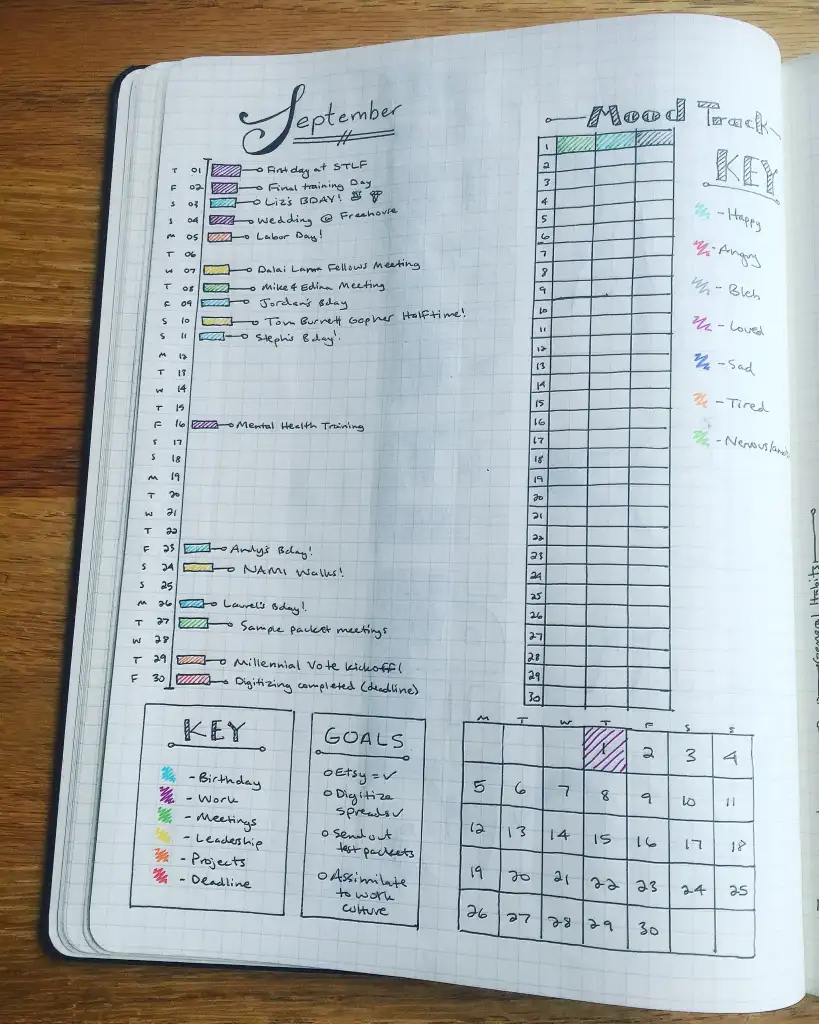 September
T 01 First day at STLF
F 02 Final training Day
S 03 Liz's BDAY!
S 04 Wedding @ Freehouse
M 05 Labor Day!
T 06
W 07 Dalai Lama Fellows Meeting
T 08 Mike & Edina Meeting
F 09 Jordan's Bday
S 10 Tom Burnett Gopher Halftime!
S 11 Steph's Bday!
M 12
T 13
W 14
T 15
F 16 Mental Health Training
S 17
S 18
M 19
T 20
W 21
T 22
F 23 Andy's Bday!
S 24 NAMI Walks!
S 25
M 26 Laurel's Bday!
T 27 Sample packet meetings
W 28
T 29 Millennial Vote kickoff!
F 30 Digitizing completed (deadline)
KEY
- Birthday
- Work
- Meetings
- Leadership
- Projects
- Deadline
GOALS
Etsy = ✓
Digitize
spreads ✓
Send out
test packets
Assimilate
to work
culture
Mood Track
1
2
3
4
5
6
7
8
9
10
11
12
13
14
15
16
17
18
19
20
21
22
23
24
25
26
27
28
29
30
KEY
- Happy
- Angry
- Bleh
- Loved
- Sad
- Tired
- Nervous/
M T W T F S S
1 2 3 4
5 6 7 8 9 10 11
12 13 14 15 16 17 18
19 20 21 22 23 24 25
26 27 28 29 30
General Habits